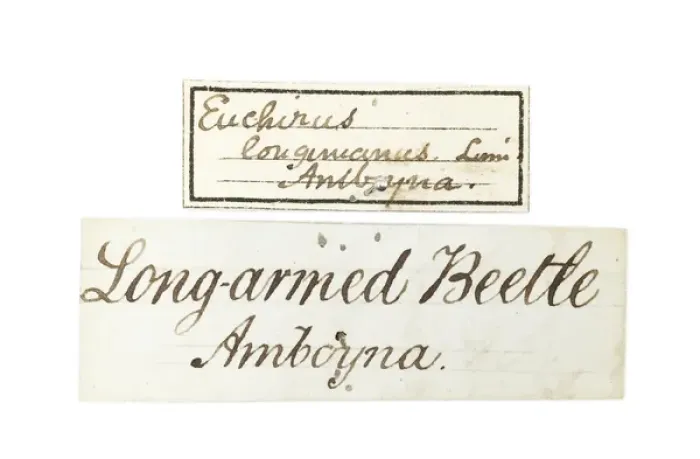 Euchirus
longimanus. Linn.
Amboyna.
Long-armed Beetle
Amboyna.